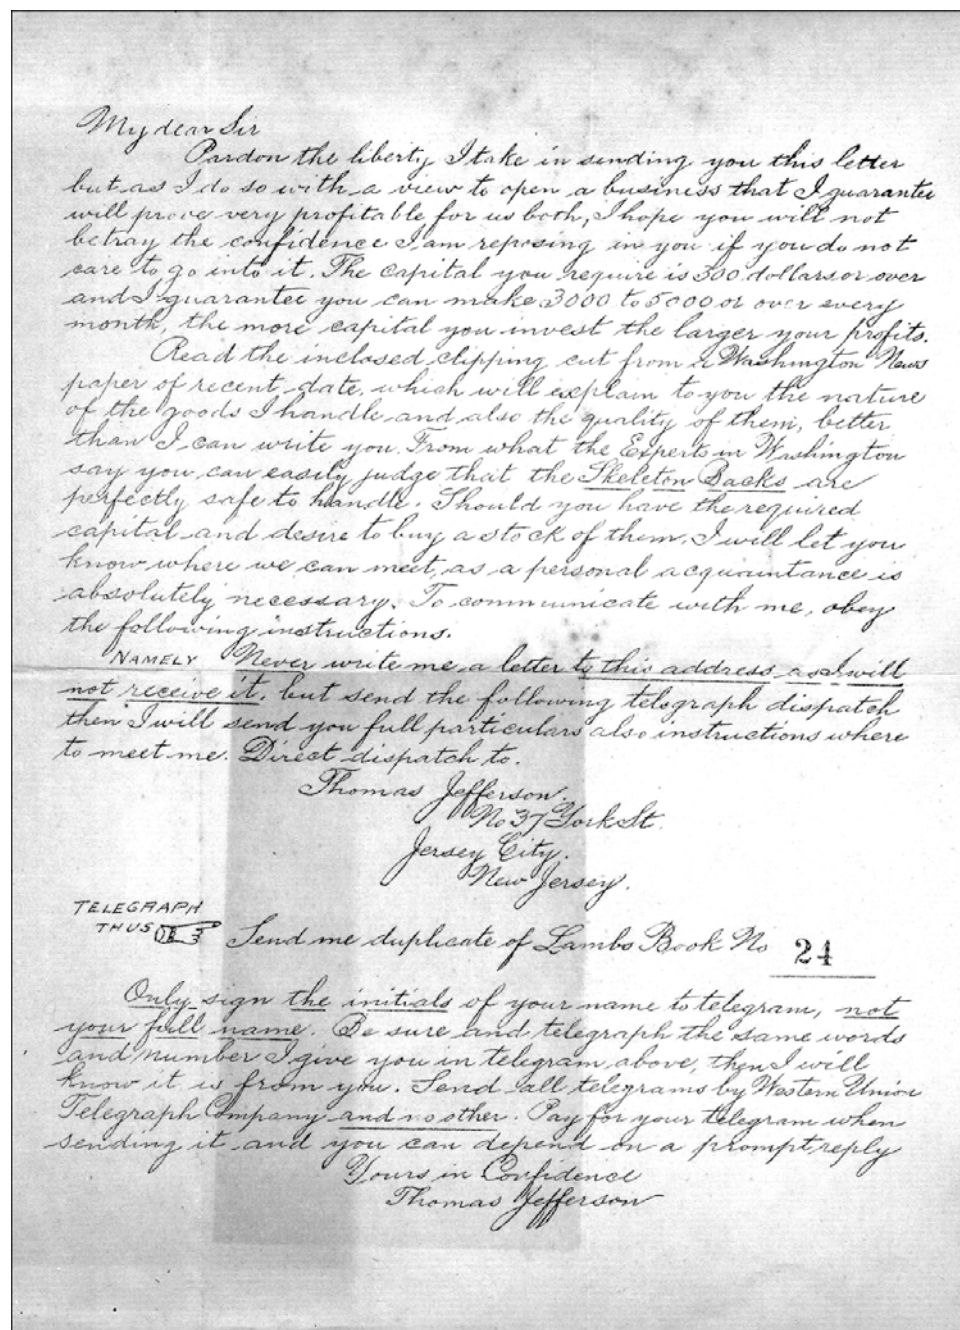 My dear Sir
Pardon the liberty I take in sending you this letter
but as I do so with a view to open a business that I guarantee
will prove very profitable for us both, I hope you will not
betray the confidence I am reposing in you if you do not
care to go into it. The capital you require is 300 dollars or over
and I guarantee you can make 3000 to 5000 or over every
month, the more capital you invest the larger your profits.
Read the inclosed clipping cut from a Washington News
paper of recent date, which will explain to you the nature
of the goods I handle and also the quality of them, better
than I can write you. From what the Experts in Washington
say you can easily judge that the Skeleton Backs are
perfectly safe to handle. Should you have the required
capital and desire to buy a stock of them, I will let you
know where we can meet, as a personal acquaintance is
absolutely necessary. To communicate with me, obey
the following instructions.
NAMELY Never write me a letter to this address as I will
not receive it, but send the following telegraph dispatch
then I will send you full particulars also instructions where
to meet me. Direct dispatch to.
Thomas Jefferson.
No 37 York St.
Jersey City.
New Jersey.
TELEGRAPH
THUS Send me duplicate of Lambs Book No 24
Only sign the initials of your name to telegram, not
your full name. Be sure and telegraph the same words
and number I give you in telegram above, then I will
know it is from you. Send all telegrams by Western Union
Telegraph Company and no other. Pay for your telegram when
sending it and you can depend on a prompt reply
Yours in Confidence
Thomas Jefferson